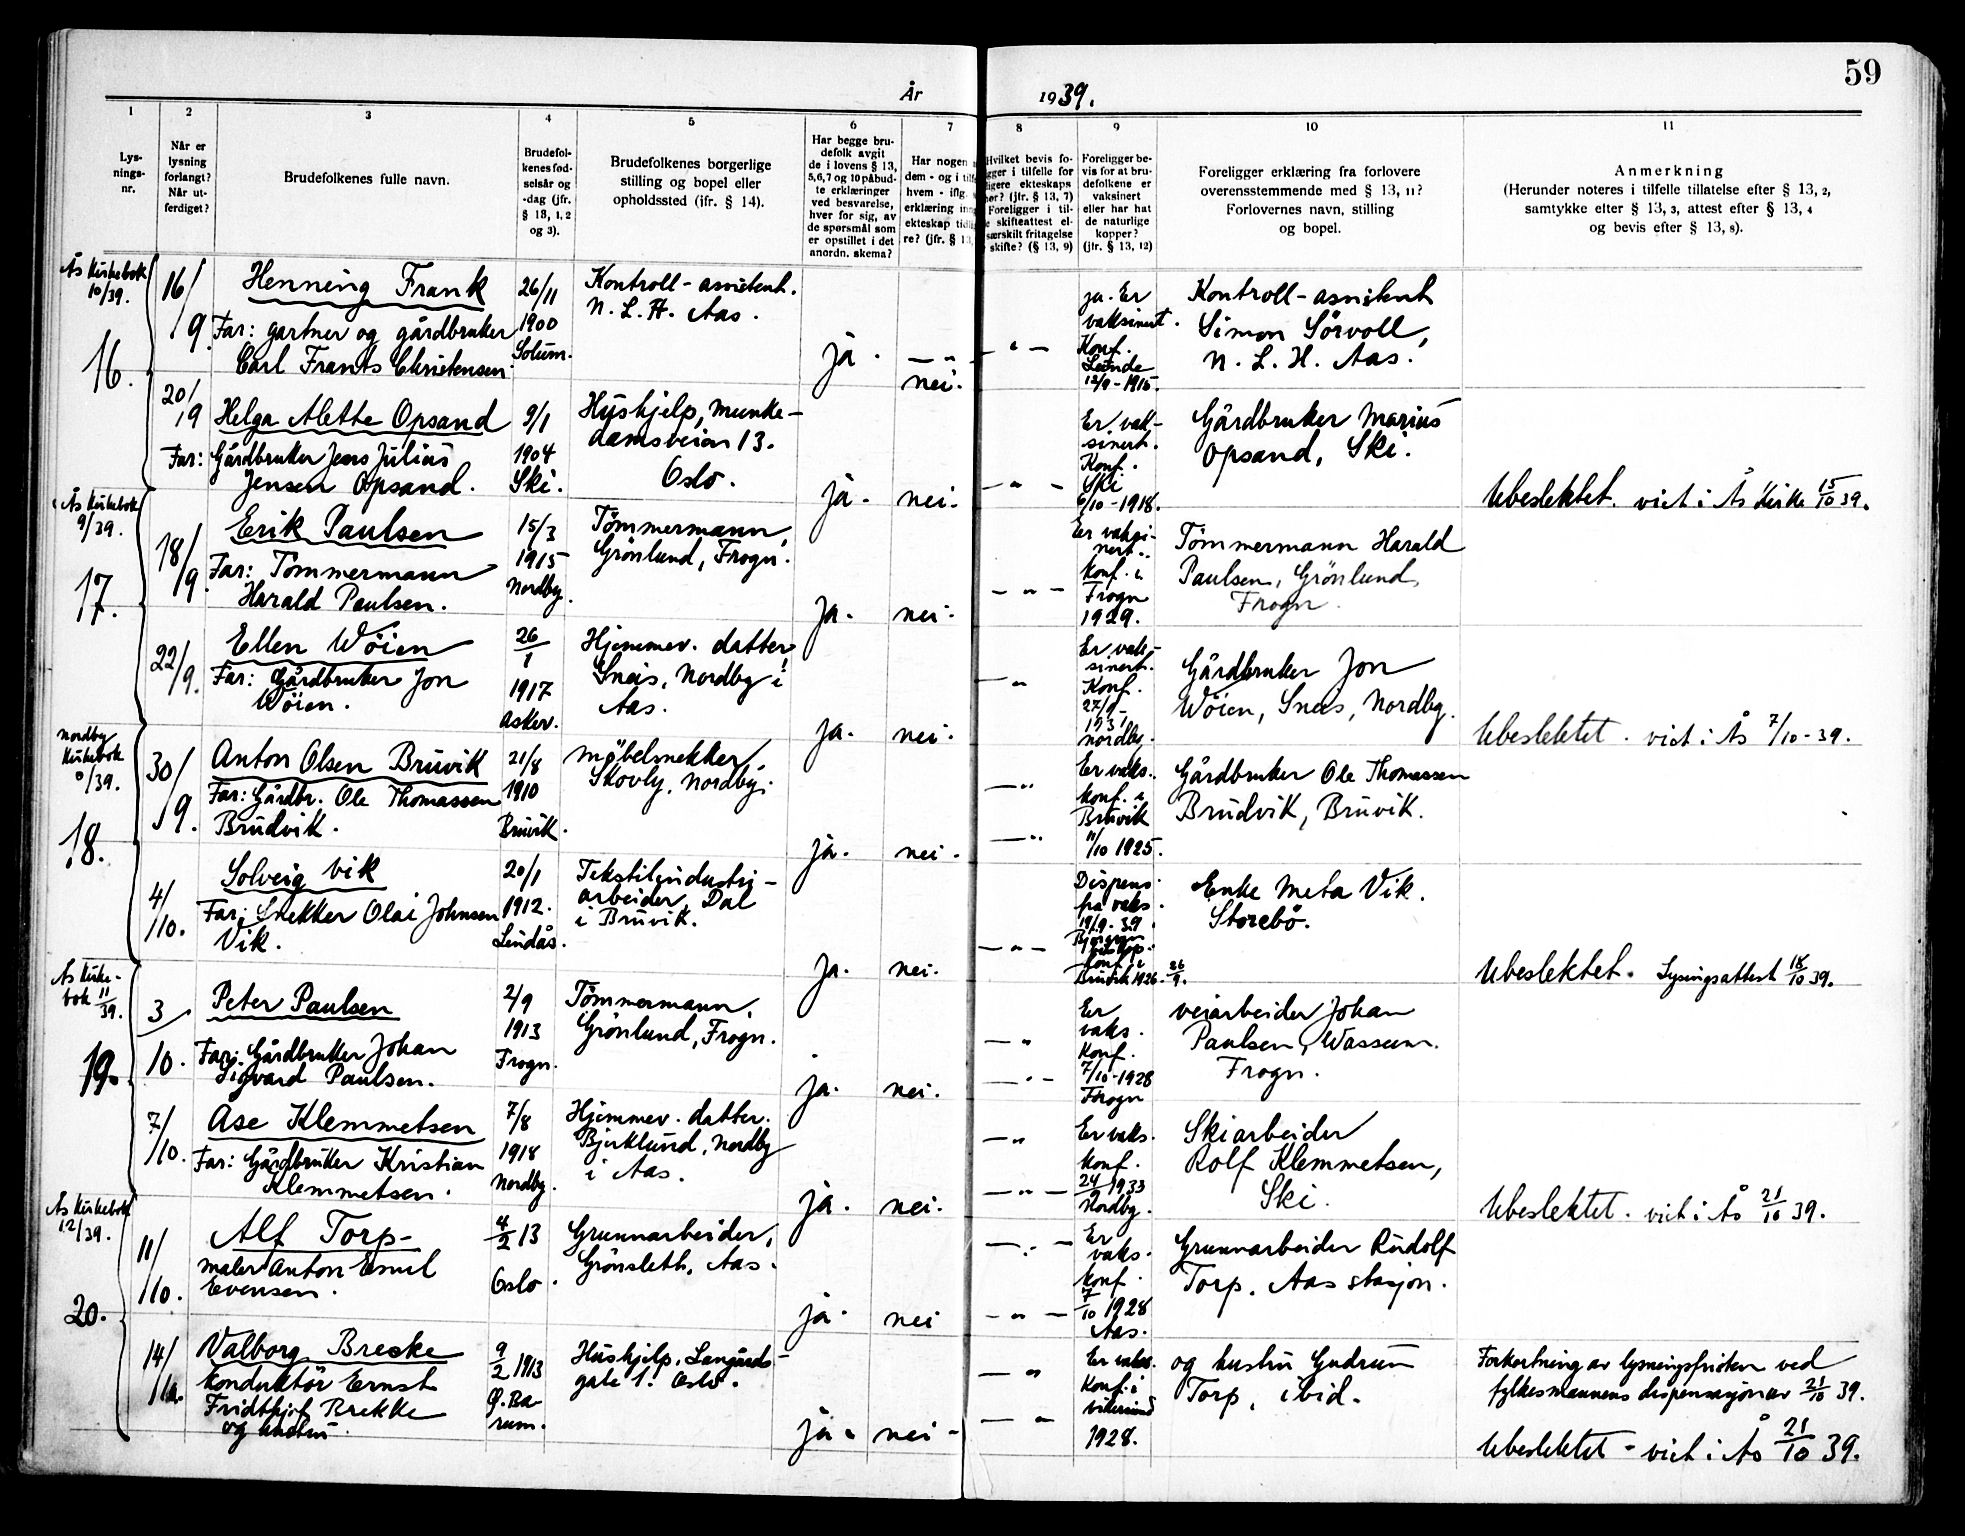 59
År 1939.
1
2
3
4
5
6
7
8
9
10
11
Lys-
nings-
nr.
Når er
lysning
forlangt?
Når ut-
ferdiget?
Brudefolkenes fulle navn.
Brudefol-
kenes fød-
selsår og
-dag (jfr.
§ 13, 1, 2
og 3).
Brudefolkenes borgerlige
stilling og bopel eller
opholdssted (jfr. § 14).
Har begge bru-
defolk avgit
de i lovens § 13,
5,6,7 og 10 påbud-
te erklæringer
ved besvarelse,
hver for sig, av
de spørsmål som
er opstillet i det
anordn. skema?
Har nogen
dem - og i
hvem - iflg.
erklæring
ekteskap
re? (jfr. § 13,
Hvilket bevis fo-
i tilfelle for
ekteskaps
(jfr. § 13, 7)
Foreligger i til-
skifteattest el-
særskilt fritagelse
skifte? (§ 13, 9)
Foreligger be-
vis for at bru-
defolkene er
vaksinert
eller har hat
de naturlige
kopper?
(jfr. § 13, 12)
Foreligger erklæring fra forlovere
overensstemmende med § 13, 11?
Forlovernes navn, stilling
og bopel.
Anmerkning
(Herunder noteres i tilfelle tillatelse efter § 13, 2,
samtykke efter § 13, 3, attest efter § 13, 4
og bevis efter § 13, 8).
Ås Kirkebok
10/39.
16.
16/9.
Henning Frank
Far: gartner og gårdbruker
Carl Frants Christensen.
26/11
1900
Solum.
Kontroll-assistent.
N. L. H. Aas.
ja.
nei.
ja. Er
vaksinert.
Konf.
1915.
Kontroll-assistent
Simon Sörvoll,
N. L. H. Aas.
20/9
Helga Alette Opsand
Far: Gårdbruker Jens Julius
Jensen Opsand.
9/1
1904
Ski.
Hushjelp, Munke-
damsveien 13.
Oslo.
ja.
nei.
Er vak-
sinert.
Konf.
Ski
6/10-1918.
Gårdbruker Marius
Opsand, Ski.
Ubeslektet. viet i Ås Kirke 15/10 39.
Ås Kirkebok
9/39.
17.
18/9.
Erik Paulsen
Far: Tömmermann
Harald Paulsen.
15/3
1915
Nordby.
Tömmermann,
Grönlund, Frogn.
ja.
nei.
Er vaksi-
nert.
Konf. i
Frogn
1929.
Tömmermann Harald
Paulsen, Grönlund,
Frogn.
22/9.
Ellen Wöien
Far: Gårdbruker Jon
Wöien.
26/1
1917
Asker.
Hjemmev. datter,
Sneis, Nordby i
Aas.
ja.
nei.
Er vak-
sinert.
Konf.
27/9-
1931
Nordby.
Gårdbruker Jon
Wöien, Sneis, Nordby.
Ubeslektet. viet i Ås 7/10-39.
Nordby
Kirkebok
/39.
18.
30/9.
Anton Olsen Bruvik
Far: Gårdbr. Ole Thomassen
Brudvik.
21/8
1910
Bruvik.
Möbelsnekker,
Skovly, Nordby.
ja.
nei.
Er vaks.
Konf. i
Bruvik
11/10 1925.
Gårdbruker Ole Thomassen
Brudvik, Bruvik.
4/10.
Solveig Vik
Far: Snekker Olai Johnsen
Vik.
20/1
1912.
Lindås.
Tekstilindustri-
arbeider, Dal
i Bruvik.
ja.
nei.
Dispens.
fra vaks.
19/9-39.
Konf. i
Bruvik 1926. 26/9.
Enke Meta Vik.
Storebö.
Ubeslektet. Lysningsattest 18/10 39.
Ås Kirke-
bok 11/39.
19.
3/10.
Peter Paulsen
Far: Gårdbruker Johan
Sigvard Paulsen.
2/9
1913
Frogn.
Tömmermann,
Grönlund, Frogn.
ja.
nei.
Er
vaks.
Konf.
7/10-1928
Frogn
veiarbeider Johan
Paulsen, Wassum.
Frogn.
7/10.
Ase Klemmetsen
Far: Gårdbruker Kristian
Klemmetsen.
7/8
1918
Nordby.
Hjemmev. datter.
Bjerklund, Nordby
i Aas.
ja.
nei.
Er vaks.
Konf.
24/9 1933
Nordby.
Skiarbeider
Rolf Klemmetsen,
Ski.
Ubeslektet. viet i Ås 21/10 39.
Ås Kirkebok
12/39.
20.
11/10.
Alf Torp
maler Anton Emil
Evensen.
4/2 13
Oslo.
Grunnarbeider,
Grönsleth, Aas.
ja.
nei
Er
vaks.
Konf.
7/10 1928
Aas.
Grunnarbeider Rudolf
Torp, Aas stasjon.
14/10.
Valborg Brecke
Konduktör Ernst
Fridthjof Brekke
og hustru
9/2 1913
Ø. Bæ-
rum.
Hushjelp, Langårds-
gate 1. Oslo.
ja.
nei
Er vaks.
Konf. i
1928.
og hustru Gudrun
Torp, ibid.
Forkortning av lysningsfristen ved
fylkesmannens dispensasjon av 21/10 39.
Ubeslektet - viet i Ås 21/10 39.